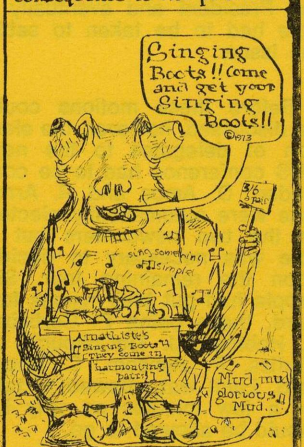 Singing
Boots!! Come
and get your
Singing
Boots!!
©1973
3/6
a pair
sing something
simple
Amathiste's
"Singing Boots"
They come in
harmonising
pairs!
Mud, mud
glorious
Mud...